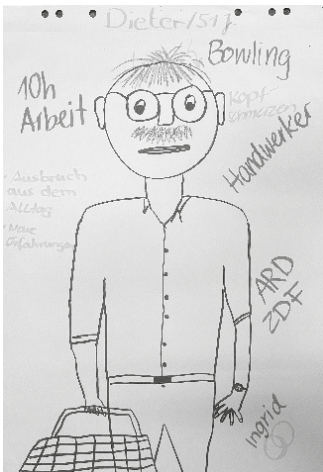 Dieter/51 J.
Bowling
10h
Arbeit
Kopf-
schmerzen
Handwerker
Ausbruch
aus dem
Alltag
Neue
Erfahrungen
ARD
ZDF
Ingrid